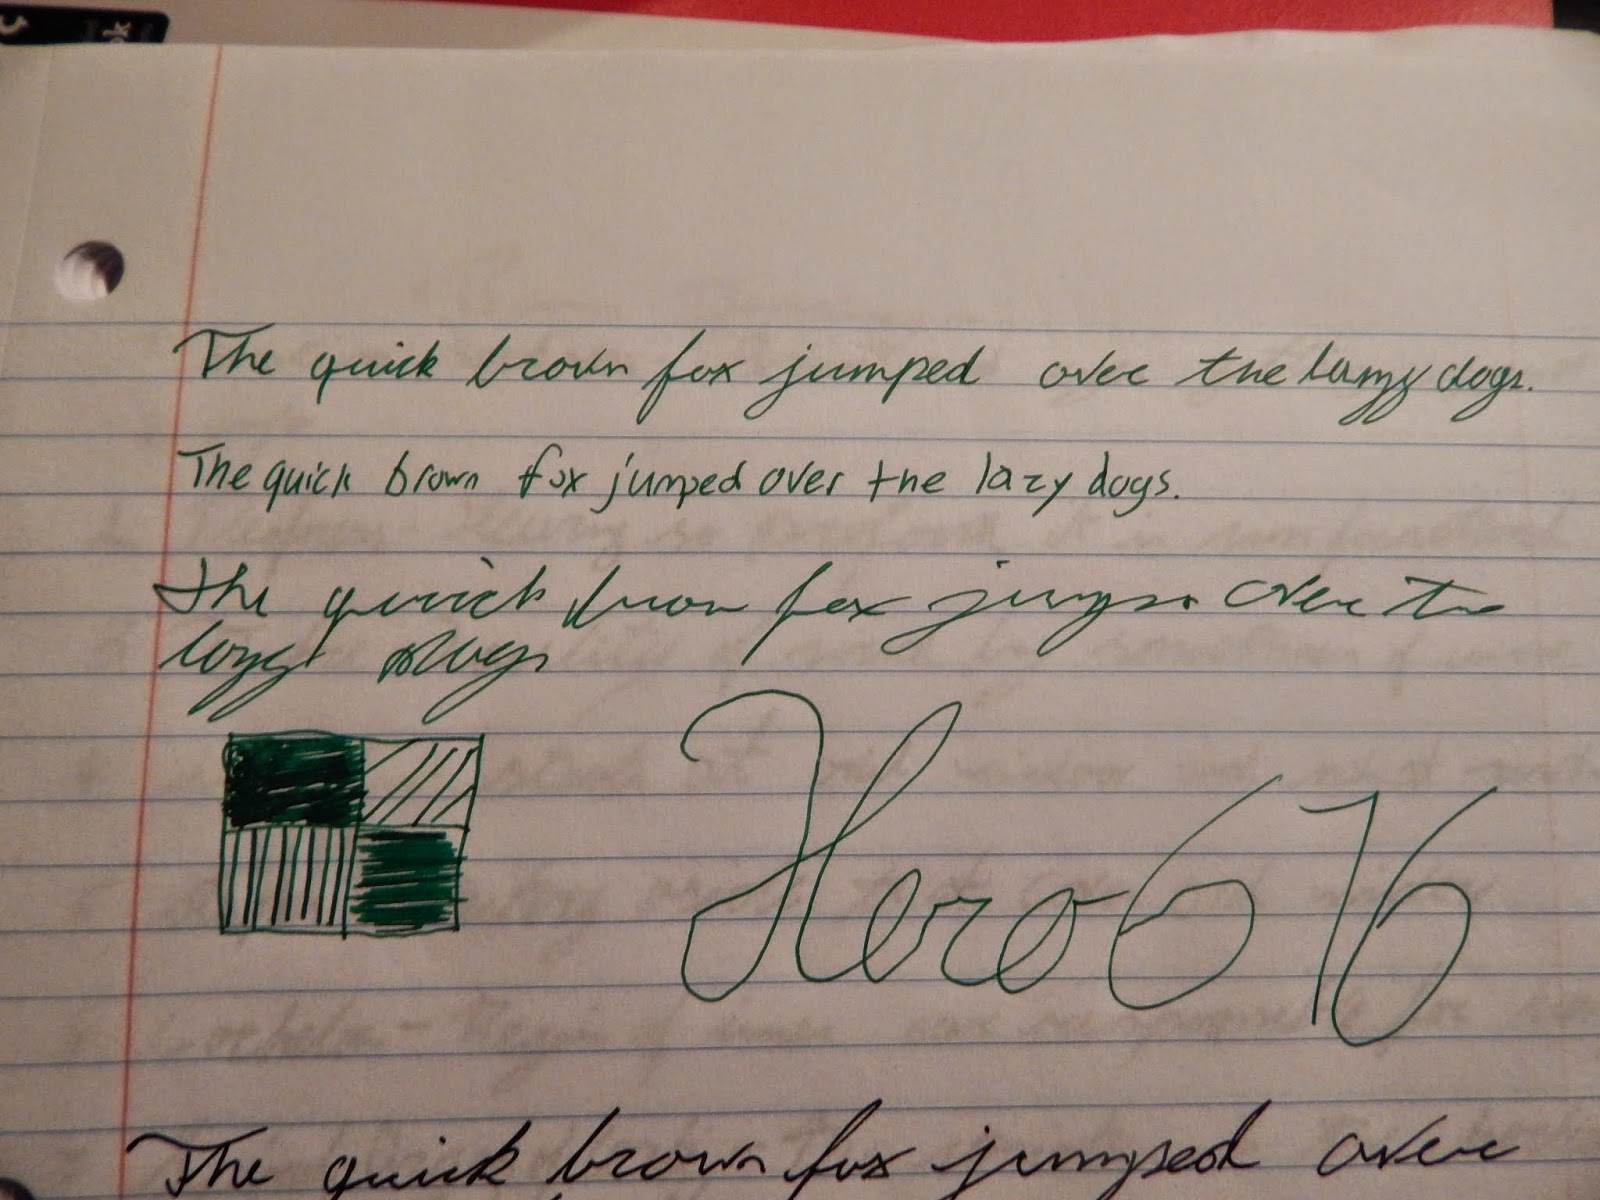 The quick brown fox jumped over the lazy dogs.
The quick brown fox jumped over the lazy dogs.
The quick brown fox jumps over the
lazy dogs
Hero676
The quick brown fox jumped over